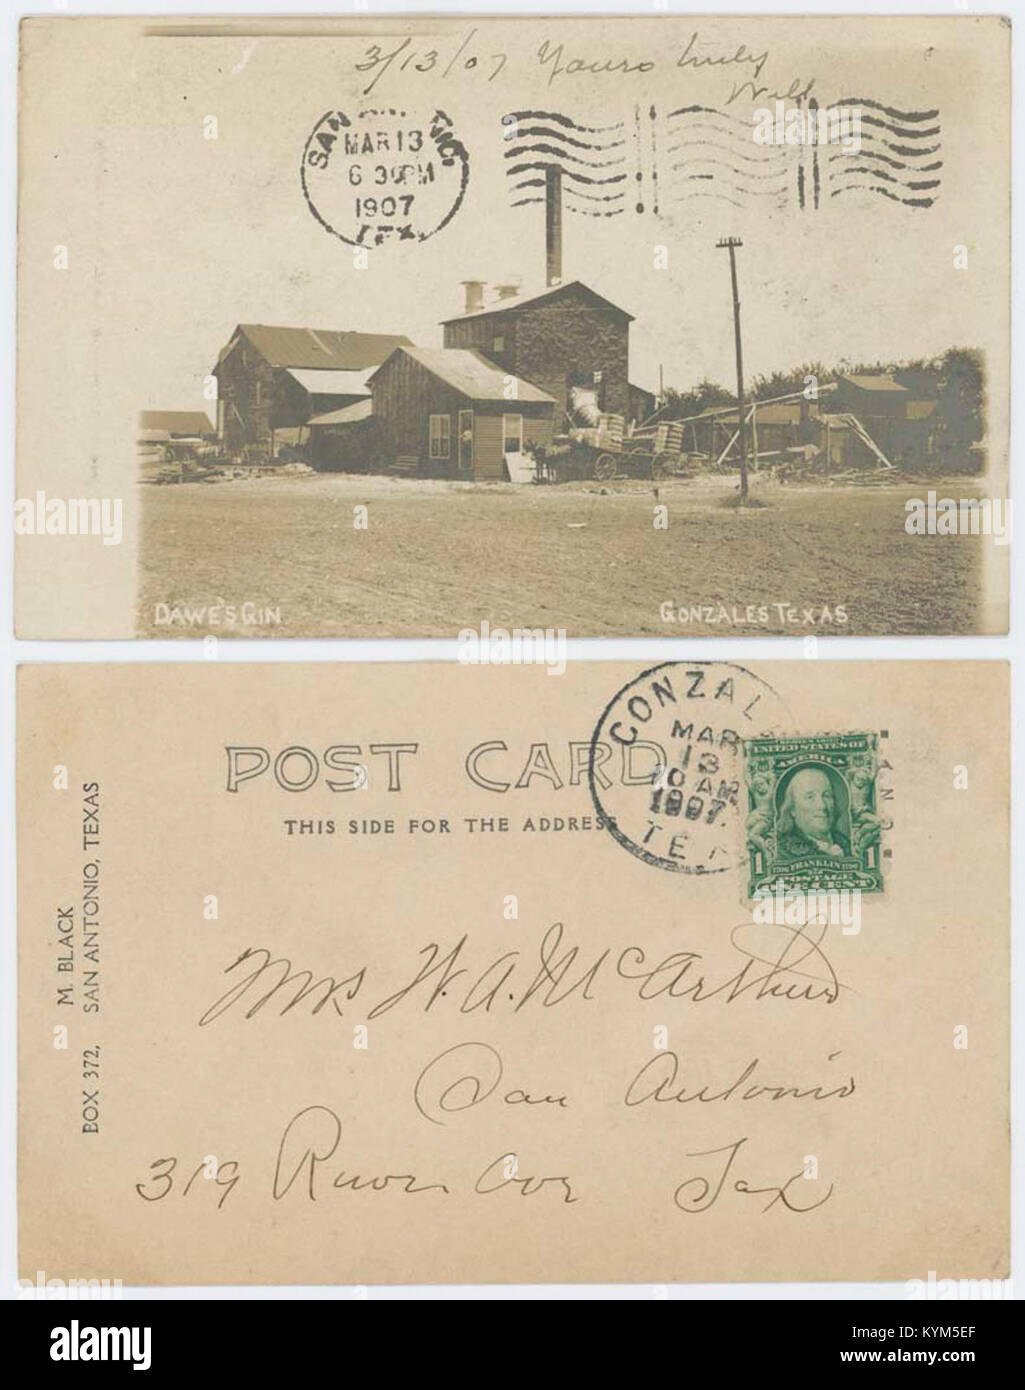 3/13/07 Yours truly
Will
SAN ANTONIO,
MAR 13
6 30 PM
1907
TEX.
DAWE'S GIN
GONZALES TEXAS
GONZAL
MAR
13
10 AM
1907.
TE
POST CARD
THIS SIDE FOR THE ADDRESS
SERIES 1902
UNITED STATES OF
AMERICA
1 FRANKLIN 1
POSTAGE
ONE CENT
M. BLACK
BOX 372, SAN ANTONIO, TEXAS
Mrs W. A. McArthur
San Antonio
319 River Ave Tex
alamy
Image ID: KYM5EF
www.alamy.com